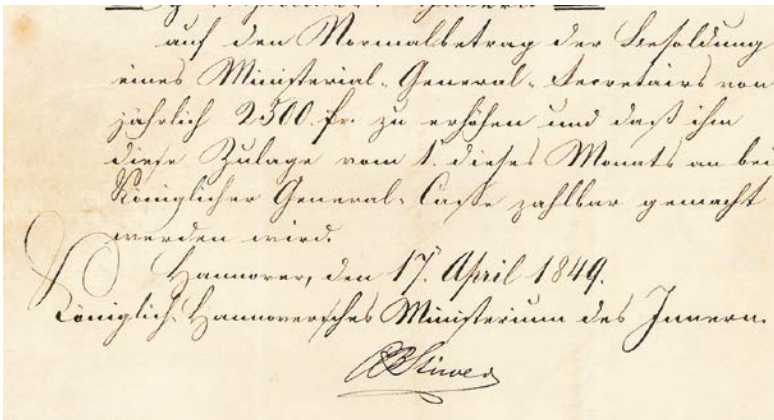 auf den Normalbetrag der Besoldung
eines Ministerial-General-Secretairs von
jährlich 2500. fr. zu erhöhen und daß ihm
diese Zulage vom 1. dieses Monats an bei
Königlicher General-Casse zahlbar gemacht
werden wird.
Hannover, den 17. April 1849.
Königlich-Hannoversches Ministerium des Innern.